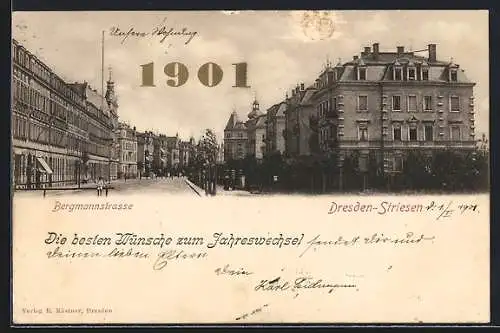 Unsere Wohnung
1901
Bergmannstrasse
Dresden-Striesen d. 1/I 1901.
Die besten Wünsche zum Jahreswechsel sendet Dir und
Deinen lieben Eltern
Dein
Karl
Verlag R. Kästner, Dresden